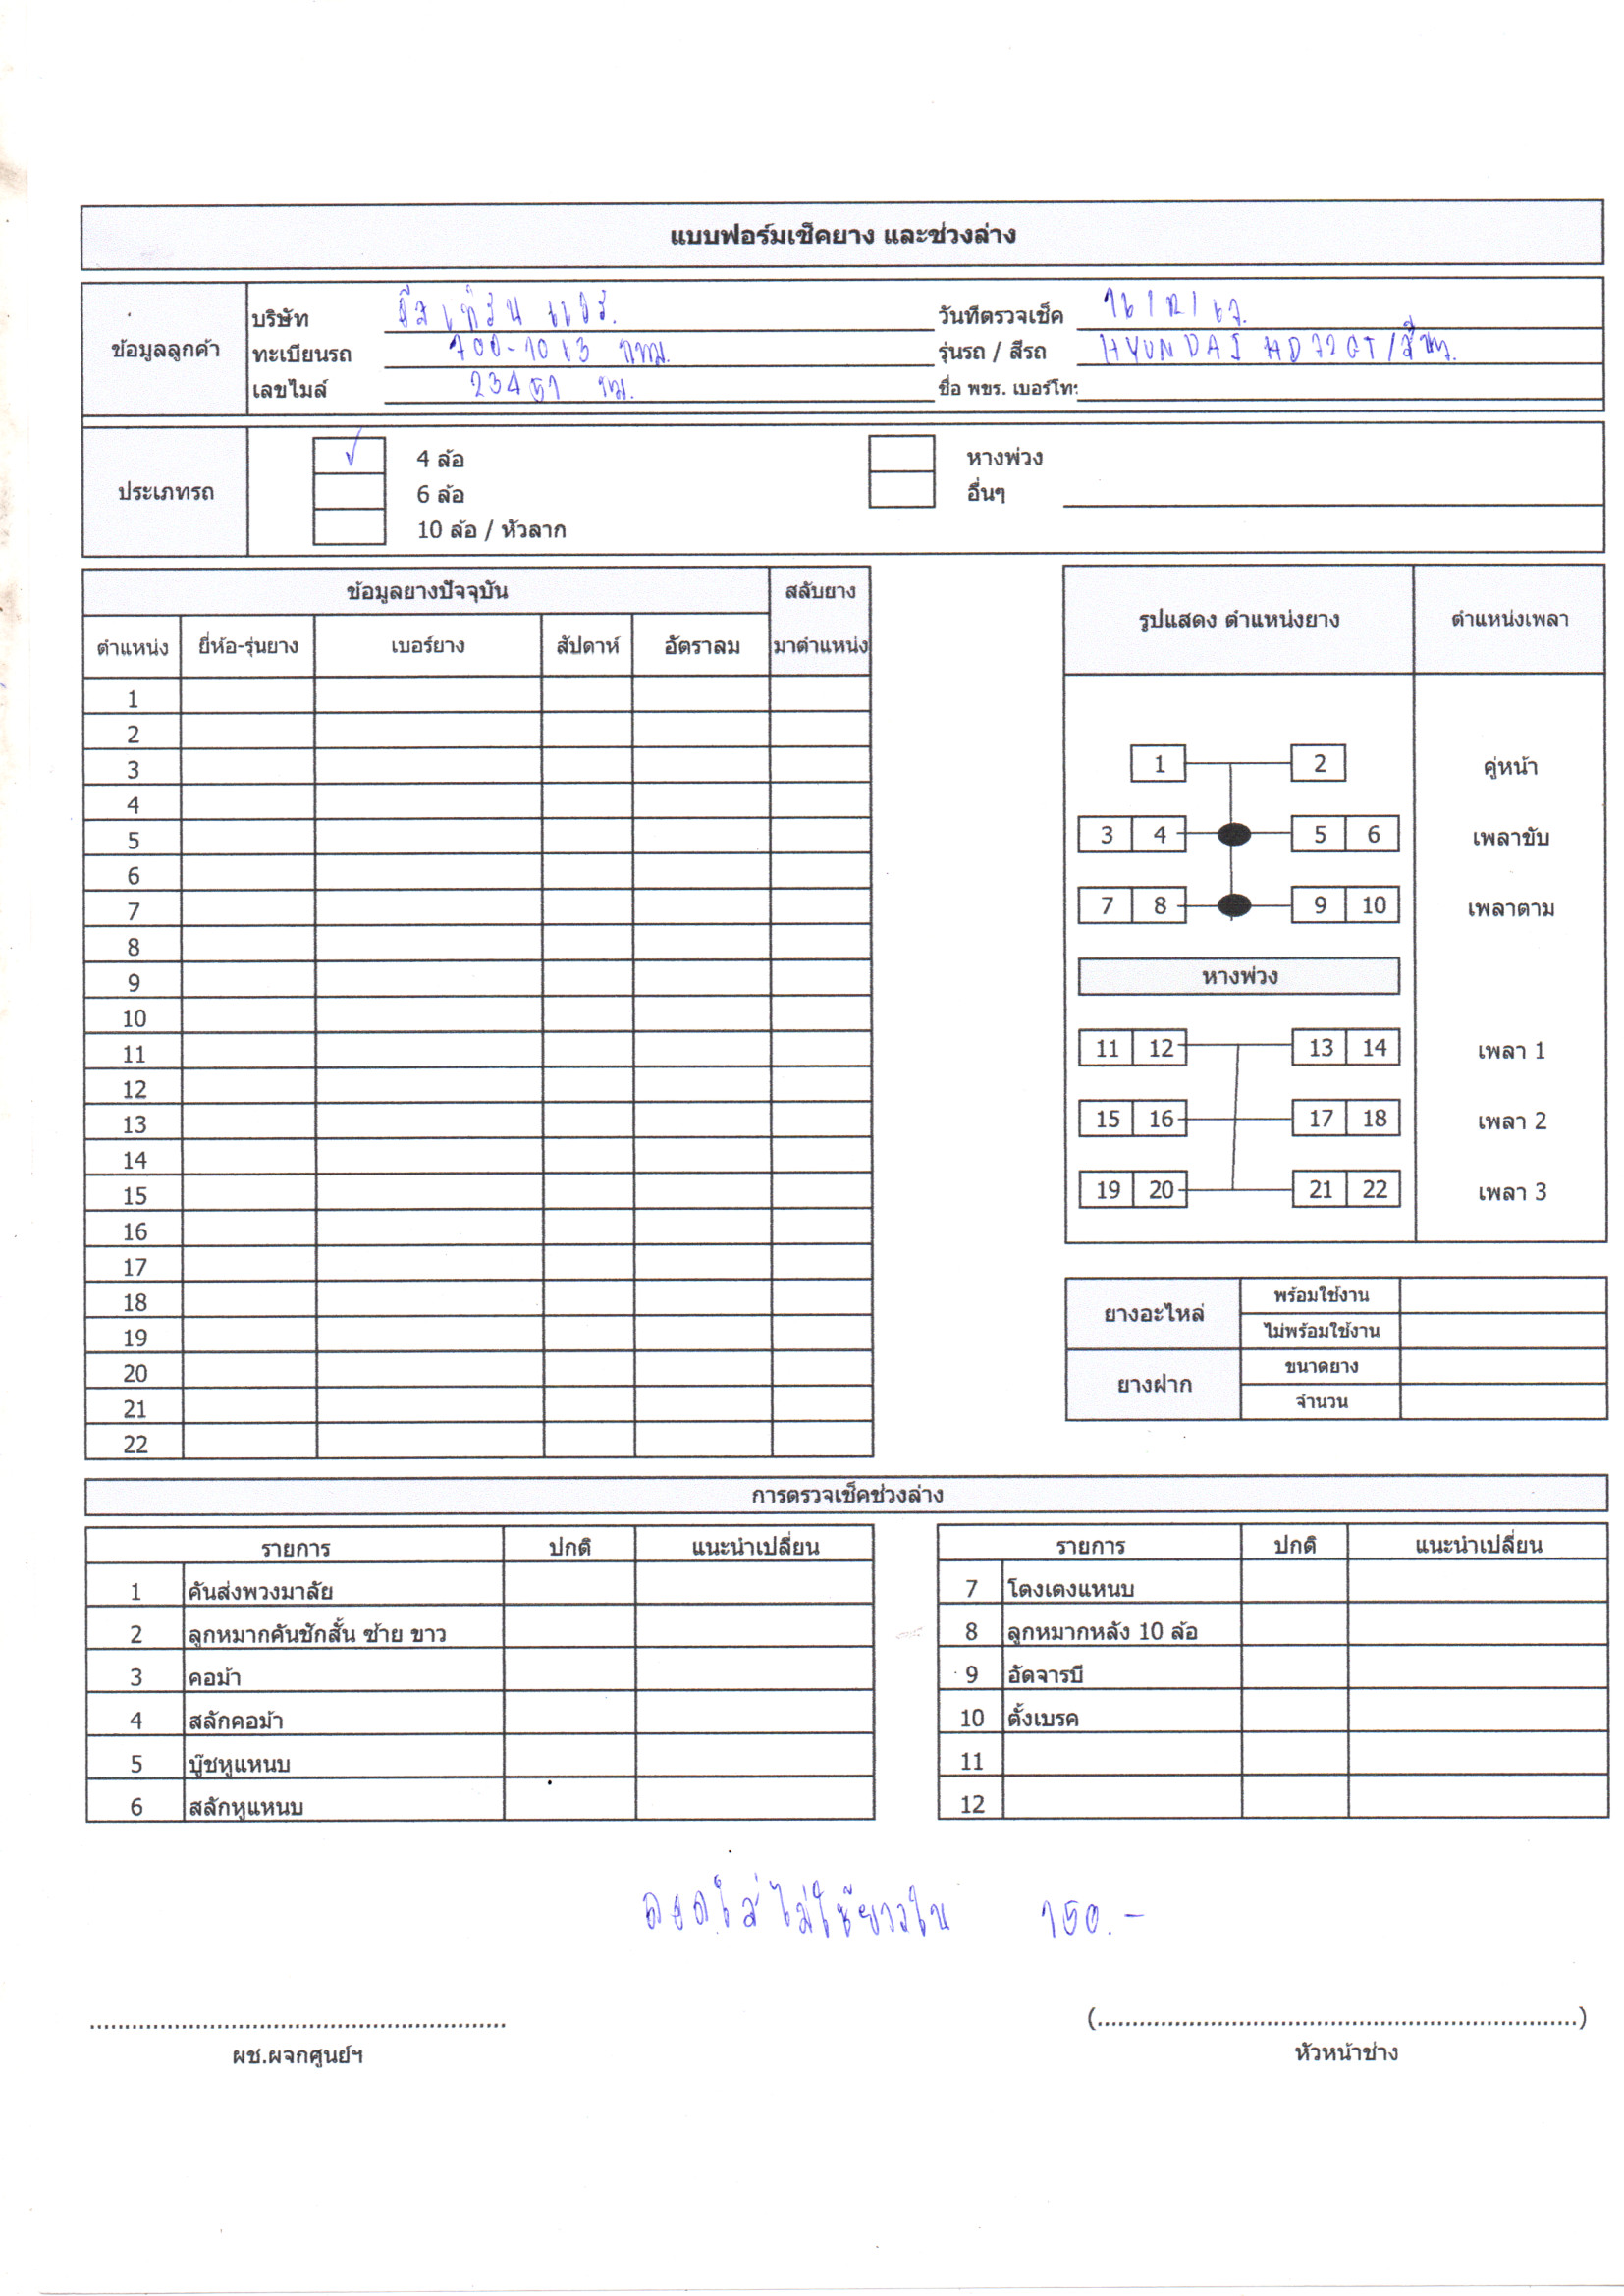 แบบฟอร์มเช็คยาง และช่วงล่าง
ข้อมูลลูกค้า
บริษัท
วันที่ตรวจเช็ค
ทะเบียนรถ 700-1013 กทม.
รุ่นรถ / สีรถ HYUNDAI HD
เลขไมล์ 23451 กม.
ชื่อ พขร. เบอร์โทร:
ประเภทรถ
4 ล้อ
6 ล้อ
10 ล้อ / หัวลาก
หางพ่วง
อื่นๆ
ข้อมูลยางปัจจุบัน สลับยาง
ตำแหน่ง ยี่ห้อ-รุ่นยาง เบอร์ยาง สัปดาห์ อัตราลม มาตำแหน่ง
1
2
3
4
5
6
7
8
9
10
11
12
13
14
15
16
17
18
19
20
21
22
รูปแสดง ตำแหน่งยาง ตำแหน่งเพลา
1 2 คู่หน้า
3 4 5 6 เพลาขับ
7 8 9 10 เพลาตาม
หางพ่วง
11 12 13 14 เพลา 1
15 16 17 18 เพลา 2
19 20 21 22 เพลา 3
ยางอะไหล่ พร้อมใช้งาน
ไม่พร้อมใช้งาน
ยางฝาก ขนาดยาง
จำนวน
การตรวจเช็คช่วงล่าง
รายการ ปกติ แนะนำเปลี่ยน
1 คันส่งพวงมาลัย
2 ลูกหมากคันชักสั้น ซ้าย ขาว
3 คอม้า
4 สลักคอม้า
5 บู๊ชหูแหนบ
6 สลักหูแหนบ
รายการ ปกติ แนะนำเปลี่ยน
7 โตงเตงแหนบ
8 ลูกหมากหลัง 10 ล้อ
9 อัดจารบี
10 ตั้งเบรค
11
12
ถอดใส่ไม่ใช้ยางใน 150.-
ผช.ผจกศูนย์ฯ
หัวหน้าช่าง